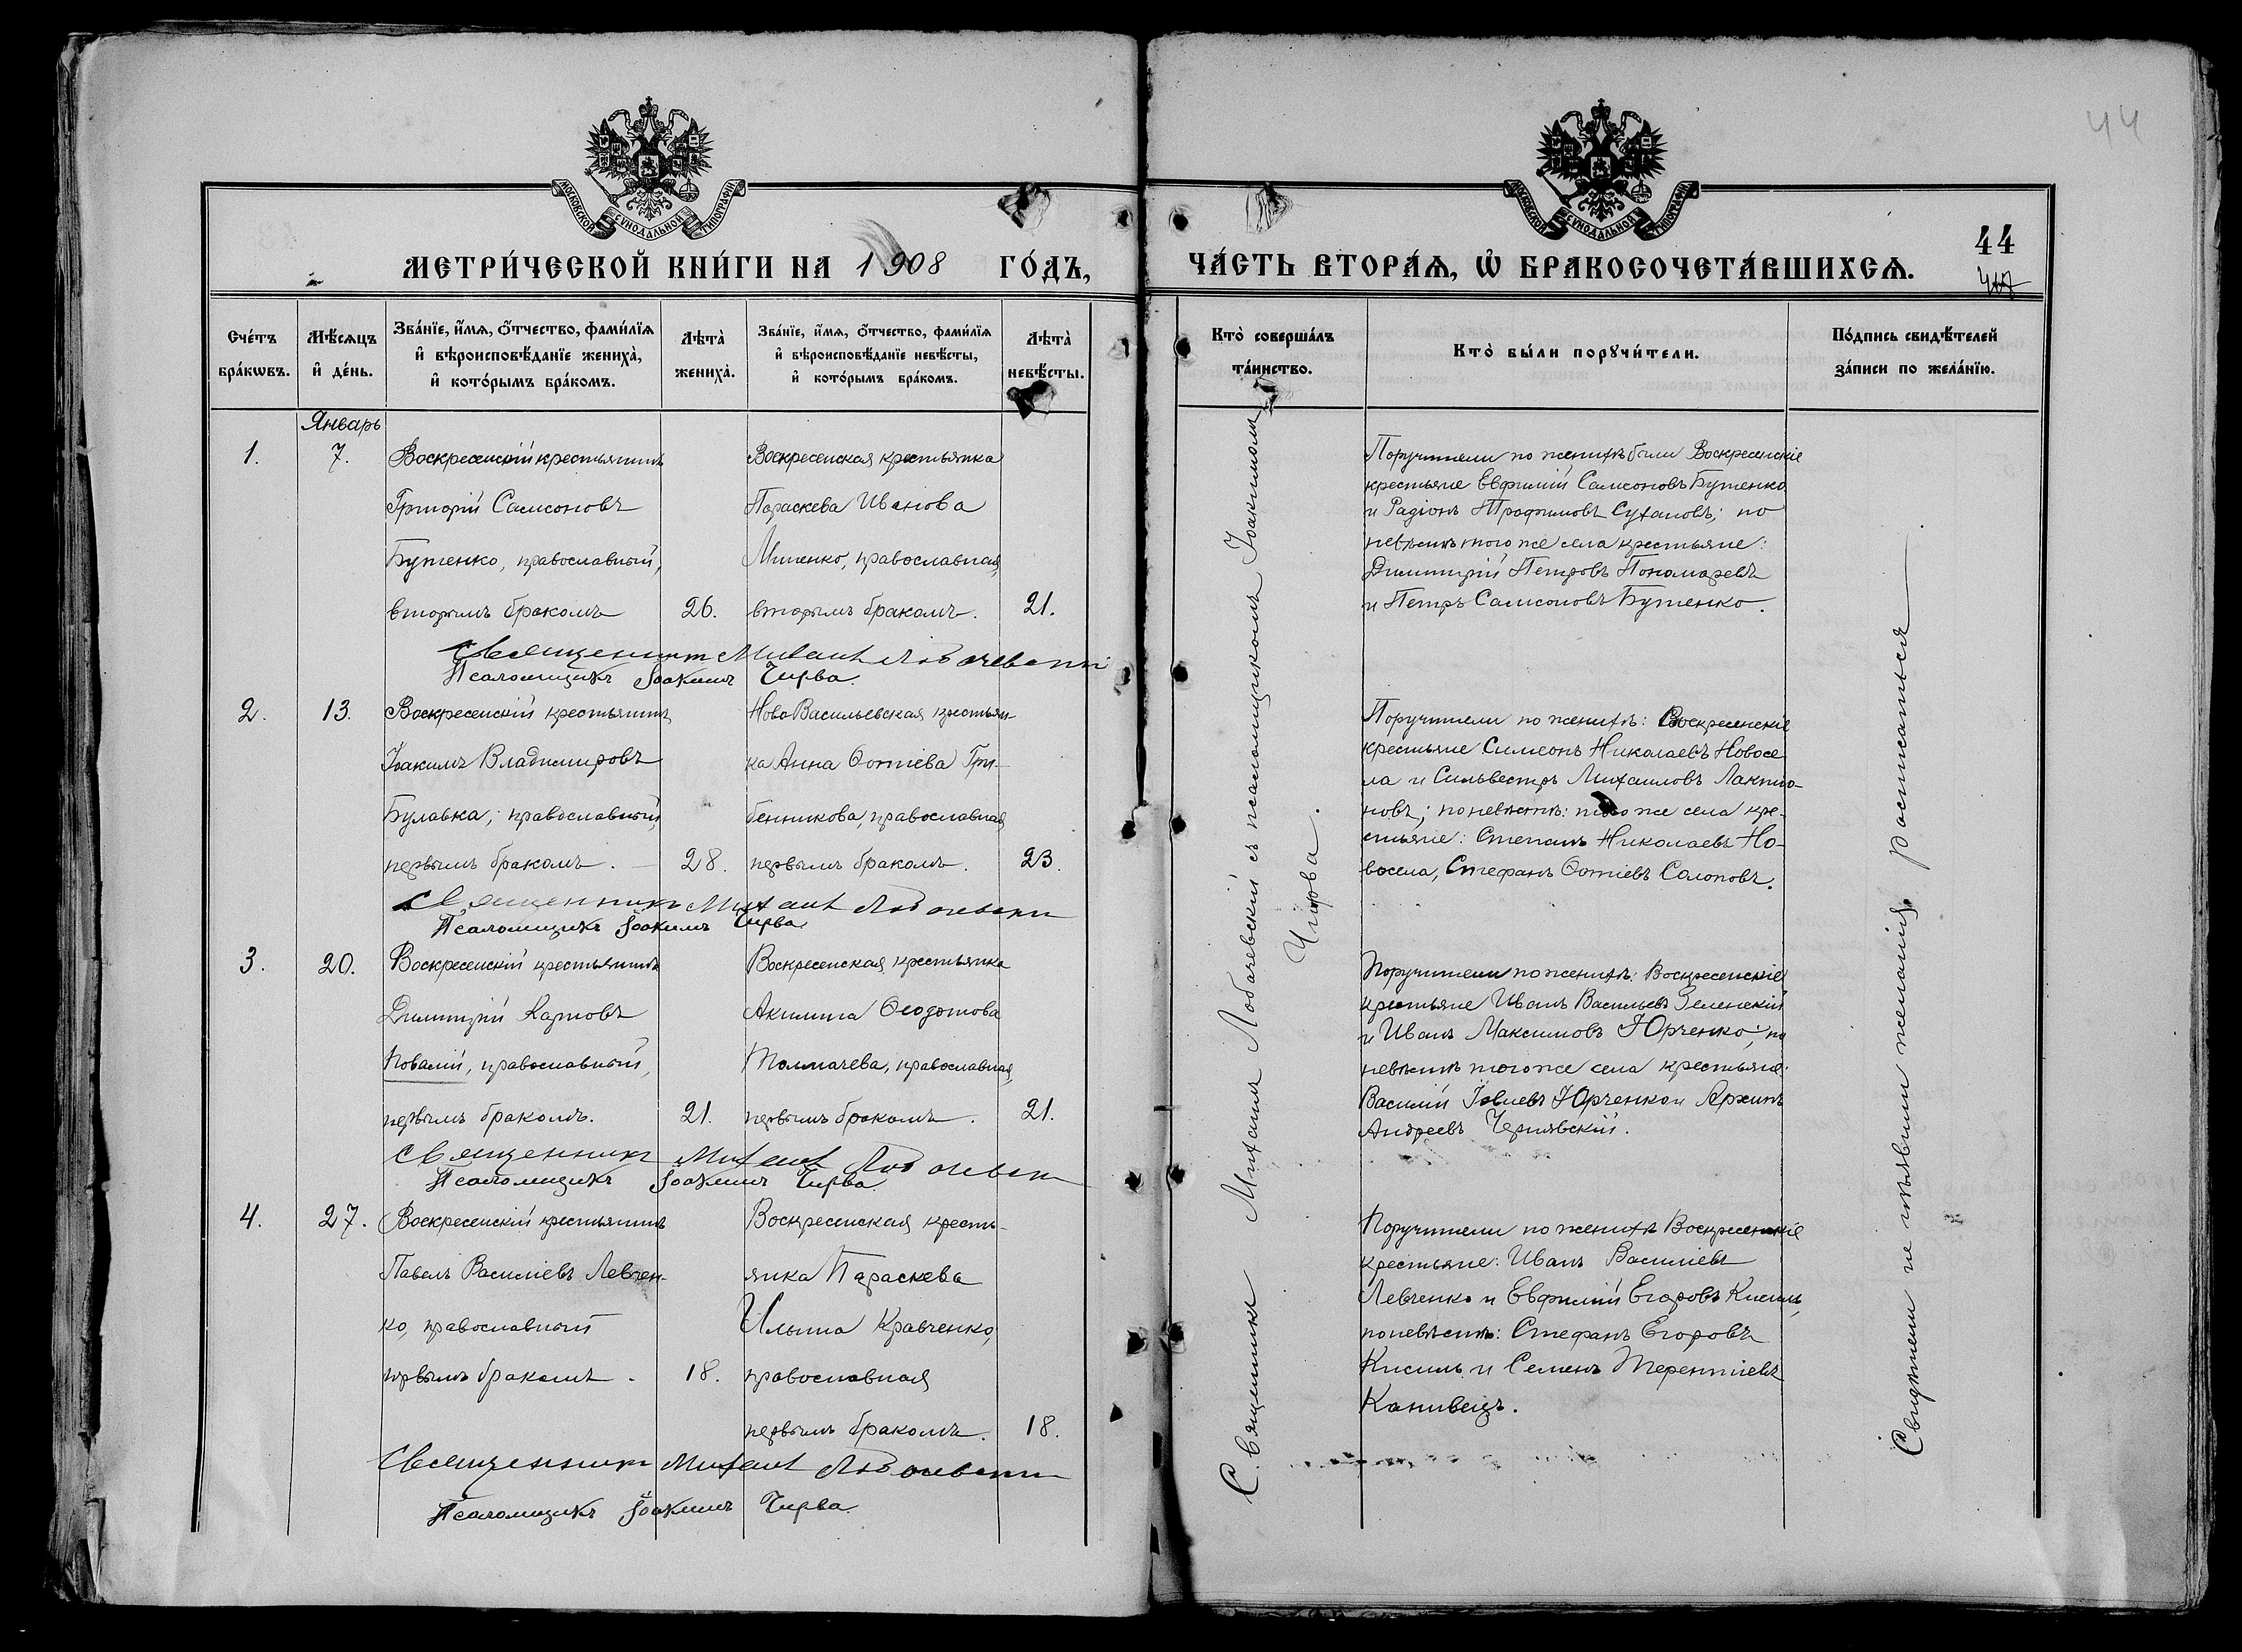 МОСКОВСКОЙ СѴНОДАЛЬНОЙ ТИПОГРАФІИ
МЕТРИ́ЧЕСКОЙ КНИ́ГИ НА 1908 ГО́ДЪ,
Сче́тъ бра́кѡвъ.
Мѣ́сѧцъ и҆ де́нь.
Зва́нїе, и҆́мѧ, ѻ҆́тчество, фами́лїѧ и҆ вѣроисповѣ́данїе жениха̀, и҆ кото́рымъ бра́комъ.
Лѣта̀ жениха̀.
Зва́нїе, и҆́мѧ, ѻ҆́тчество, фами́лїѧ и҆ вѣроисповѣ́данїе невѣ́сты, и҆ кото́рымъ бра́комъ.
Лѣта̀ невѣ́сты.
Январь
1.
7.
Воскресенскій крестьянинъ
Григорій Самсоновъ
Бутенко, православный,
вторымъ бракомъ
26.
Воскресенская крестьянка
Параскева Иванова
православная,
вторымъ бракомъ.
21.
Священникъ Михаилъ Лобачевскій
Псаломщикъ Іоакимъ Чирва.
2.
13.
Воскресенскій крестьянинъ
Іоакимъ Владимировъ
Булавка, православный,
первымъ бракомъ.
28.
НовоВасильевская крестьян-
ка Анна Ѳотіева Гри-
бенникова, православная,
первымъ бракомъ.
23.
Священникъ Михаилъ Лобачевскій
Псаломщикъ Іоакимъ Чирва
3.
20.
Воскресенскій крестьянинъ
Димитрій Карповъ
Повалій, православный,
первымъ бракомъ.
21.
Воскресенская крестьянка
Акилина Ѳеодотова
Толмачева, православная,
первымъ бракомъ.
21.
Священникъ Михаилъ Лобачевскій
Псаломщикъ Іоакимъ Чирва.
4.
27.
Воскресенскій крестьянинъ
Павелъ Василіевъ Левчен-
ко, православный
первымъ бракомъ.
18.
Воскресенская кресть-
янка Параскева
Ильина Кравченко,
православная
первымъ бракомъ.
18.
Священникъ Михаилъ Лобачевскій
Псаломщикъ Іоакимъ Чирва.
44
МОСКОВСКОЙ СѴНОДАЛЬНОЙ ТИПОГРАФІИ
44
ЧА́СТЬ ВТОРА́Ѧ, Ѡ҆ БРАКОСОЧЕТА́ВШИХСѦ.
Кто̀ соверша́лъ та́инство.
Кто̀ бы́ли порꙋчи́тели.
По́дпись свидѣ́телей за́писи по жела́нїю.
Священникъ Михаилъ Лобачевскій съ псаломщикомъ Іоакимомъ
Чирва.
Поручители по женихѣ были Воскресенскіе
крестьяне Евфимій Самсоновъ Бутенко
и Радіонъ Трофимовъ Сухановъ; по
невѣстѣ того же села крестьяне:
Димитрій Петровъ Пономаревъ
и Петръ Самсоновъ Бутенко.
Поручители по женихѣ: Воскресенскіе
крестьяне Симеонъ Николаевъ Новосе-
ла и Сильвестръ Михаиловъ Лактіо-
новъ; по невѣстѣ: того же села кре-
стьяне: Степанъ Николаевъ Но-
восела, Стефанъ Ѳотіевъ Солоповъ.
Поручители по женихѣ: Воскресенскіе
крестьяне Иванъ Васильевъ Зеленскій
и Иванъ Максимовъ Юрченко; по
невѣстѣ того же села крестьяне:
Василій Іовлевъ Юрченко и Архипъ
Андреевъ Чернявскій.
Поручители по женихѣ Воскресенскіе
крестьяне: Иванъ Василіевъ
Левченко и Евфимій Егоровъ Кисиль,
по невѣстѣ: Стефанъ Егоровъ
Кисиль и Семенъ Терентіевъ
Канивецъ.
Свидѣтели не изъявили желанія росписаться